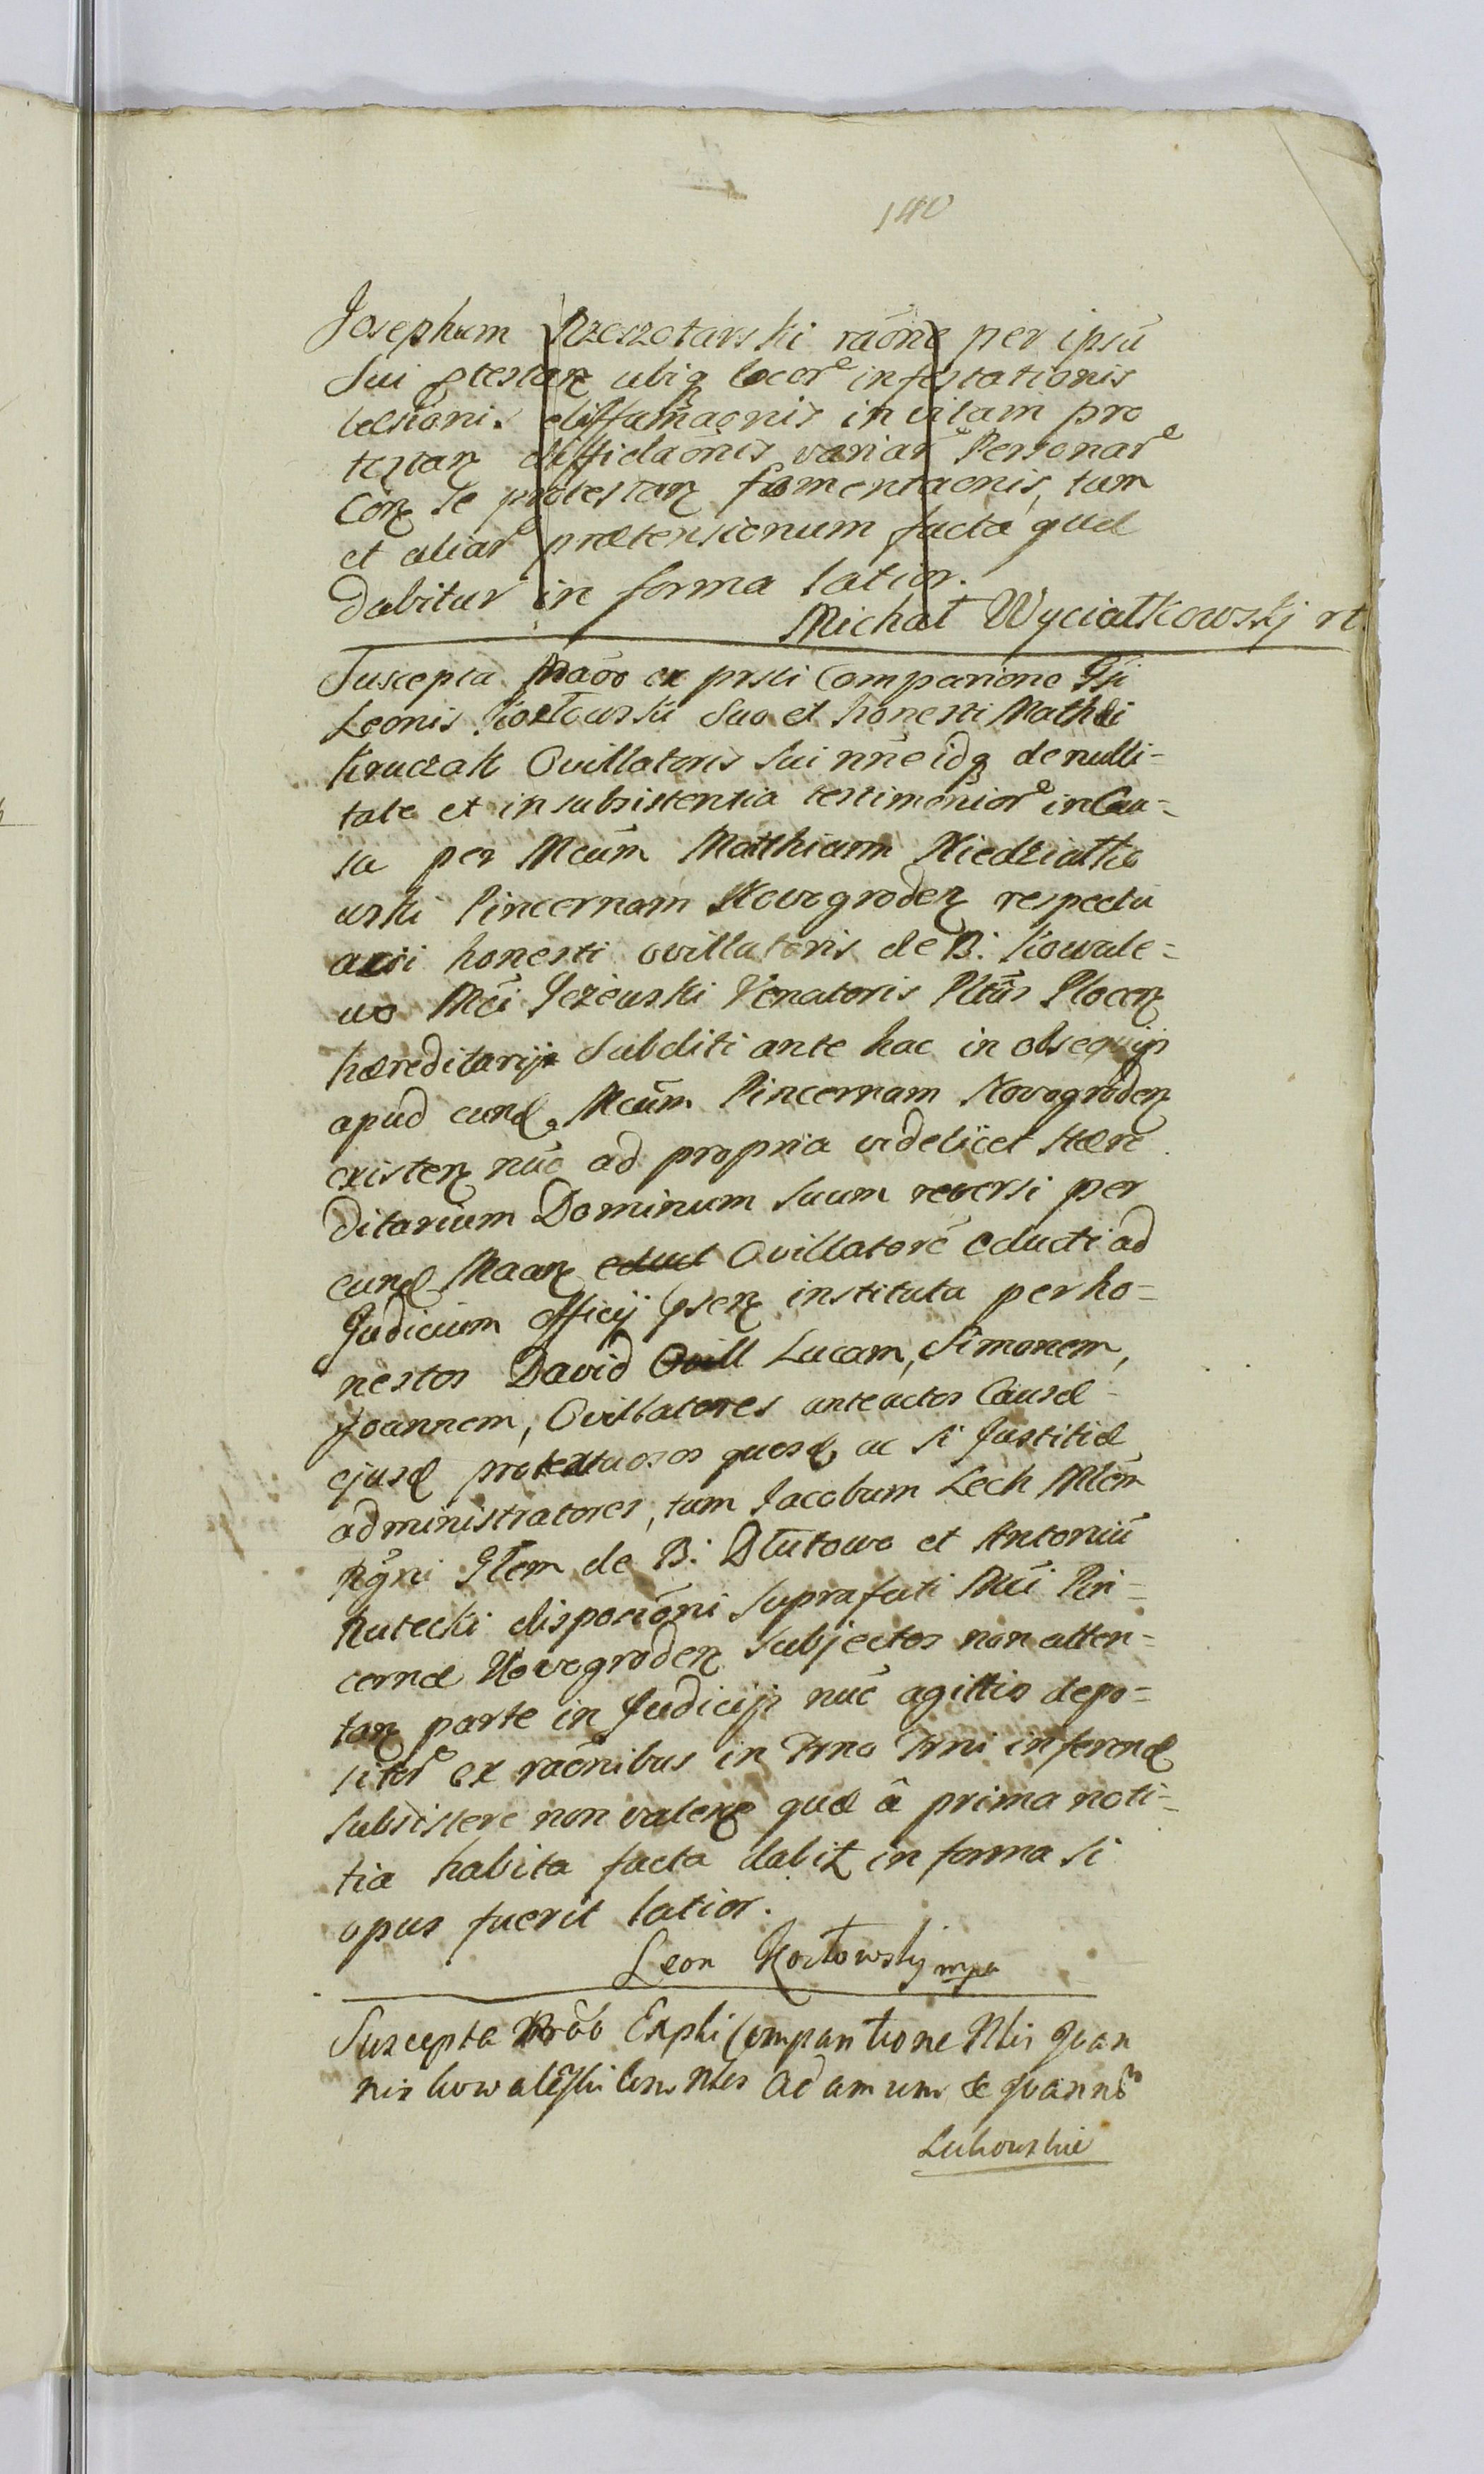 140
Josephum Rzeszotarski raōne per ipsū
Sui ptestan ubiq locor infestationis
lesioni. diffamaonis in vitam pro
testan diffidaōnis variar Personar
Con se protestan fomentaonis, tum
et aliar prætensionum facta quæ
dabitur in forma latior.
Michał Wyciałkowskj rt
Suscepta Maõo ex prsti Comparione Gsi
Leonis Kozłowski Suo et honesti Mathei
Kruczak Ovillatoris Sui nñe idq de nulli-
tate et insubsistentia testimonior in Cau-
sa per Mcum Matthiam Niedziałko
wski Pincernam Novogroden respectu
honesti ovillatoris de B: Kowale-
wo Mci Jeżewski Venatoris Pltus Plocen
hæreditarijs Subditi ante hac in obsequijs
apud eund Mcum Pincernam Novogroden
existen nūc ad propria videlicet Hære
ditarium Dominum suum reversi per
eund Maan educt Ovillatorē educti ad
Judicium officij psen instituta per ho-
nestos David Ovill Lucam, Simonem,
Joannem, Ovillatores anteactos Causæ
ejusd protextuosos quosd ac si Justitiæ
administratores, tum Jacobum Lech Mlem
Rgni Glem de B: Dłutowo et Antoniū
Rutecki disposiōni suprafati Mci Pin-
cernæ Novogroden Subjectos non atten-
tan parte in Judicijs nūc agittio depo-
sitor ex raōnibus in Trno Trni inferend
subsistere non valen quæ â prima noti-
tia habita facta dabit in forma si
opus fuerit latior.
Leon Kozłowskj mpa
Suscepta Maõo Exphi Comparitione Nlis Joan
nis kowalesski con Nles Adamum & Joannē
Lukowskie